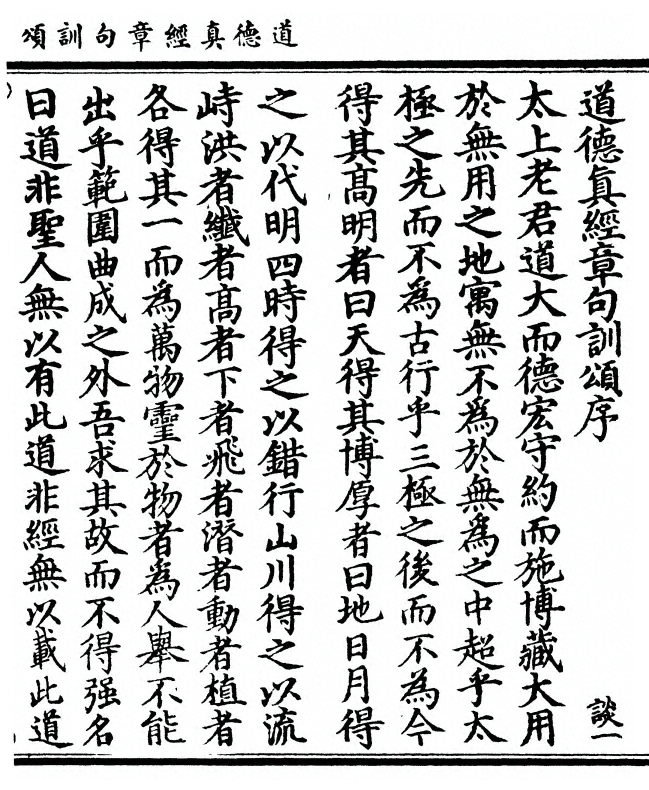 道德真經章句訓頌
道德眞經章句訓頌序
談一
太上老君道大而德宏守約而施博藏大用
於無用之地寓無不爲於無爲之中超乎太
極之先而不爲古行乎三極之後而不為今
得其高明者曰天得其博厚者曰地日月得
之以代明四時得之以錯行山川得之以流
峙洪者纖者高者下者飛者潛者動者植者
各得其一而為萬物靈於物者為人舉不能
出乎範圍曲成之外吾求其故而不得强名
曰道非聖人無以有此道非經無以載此道